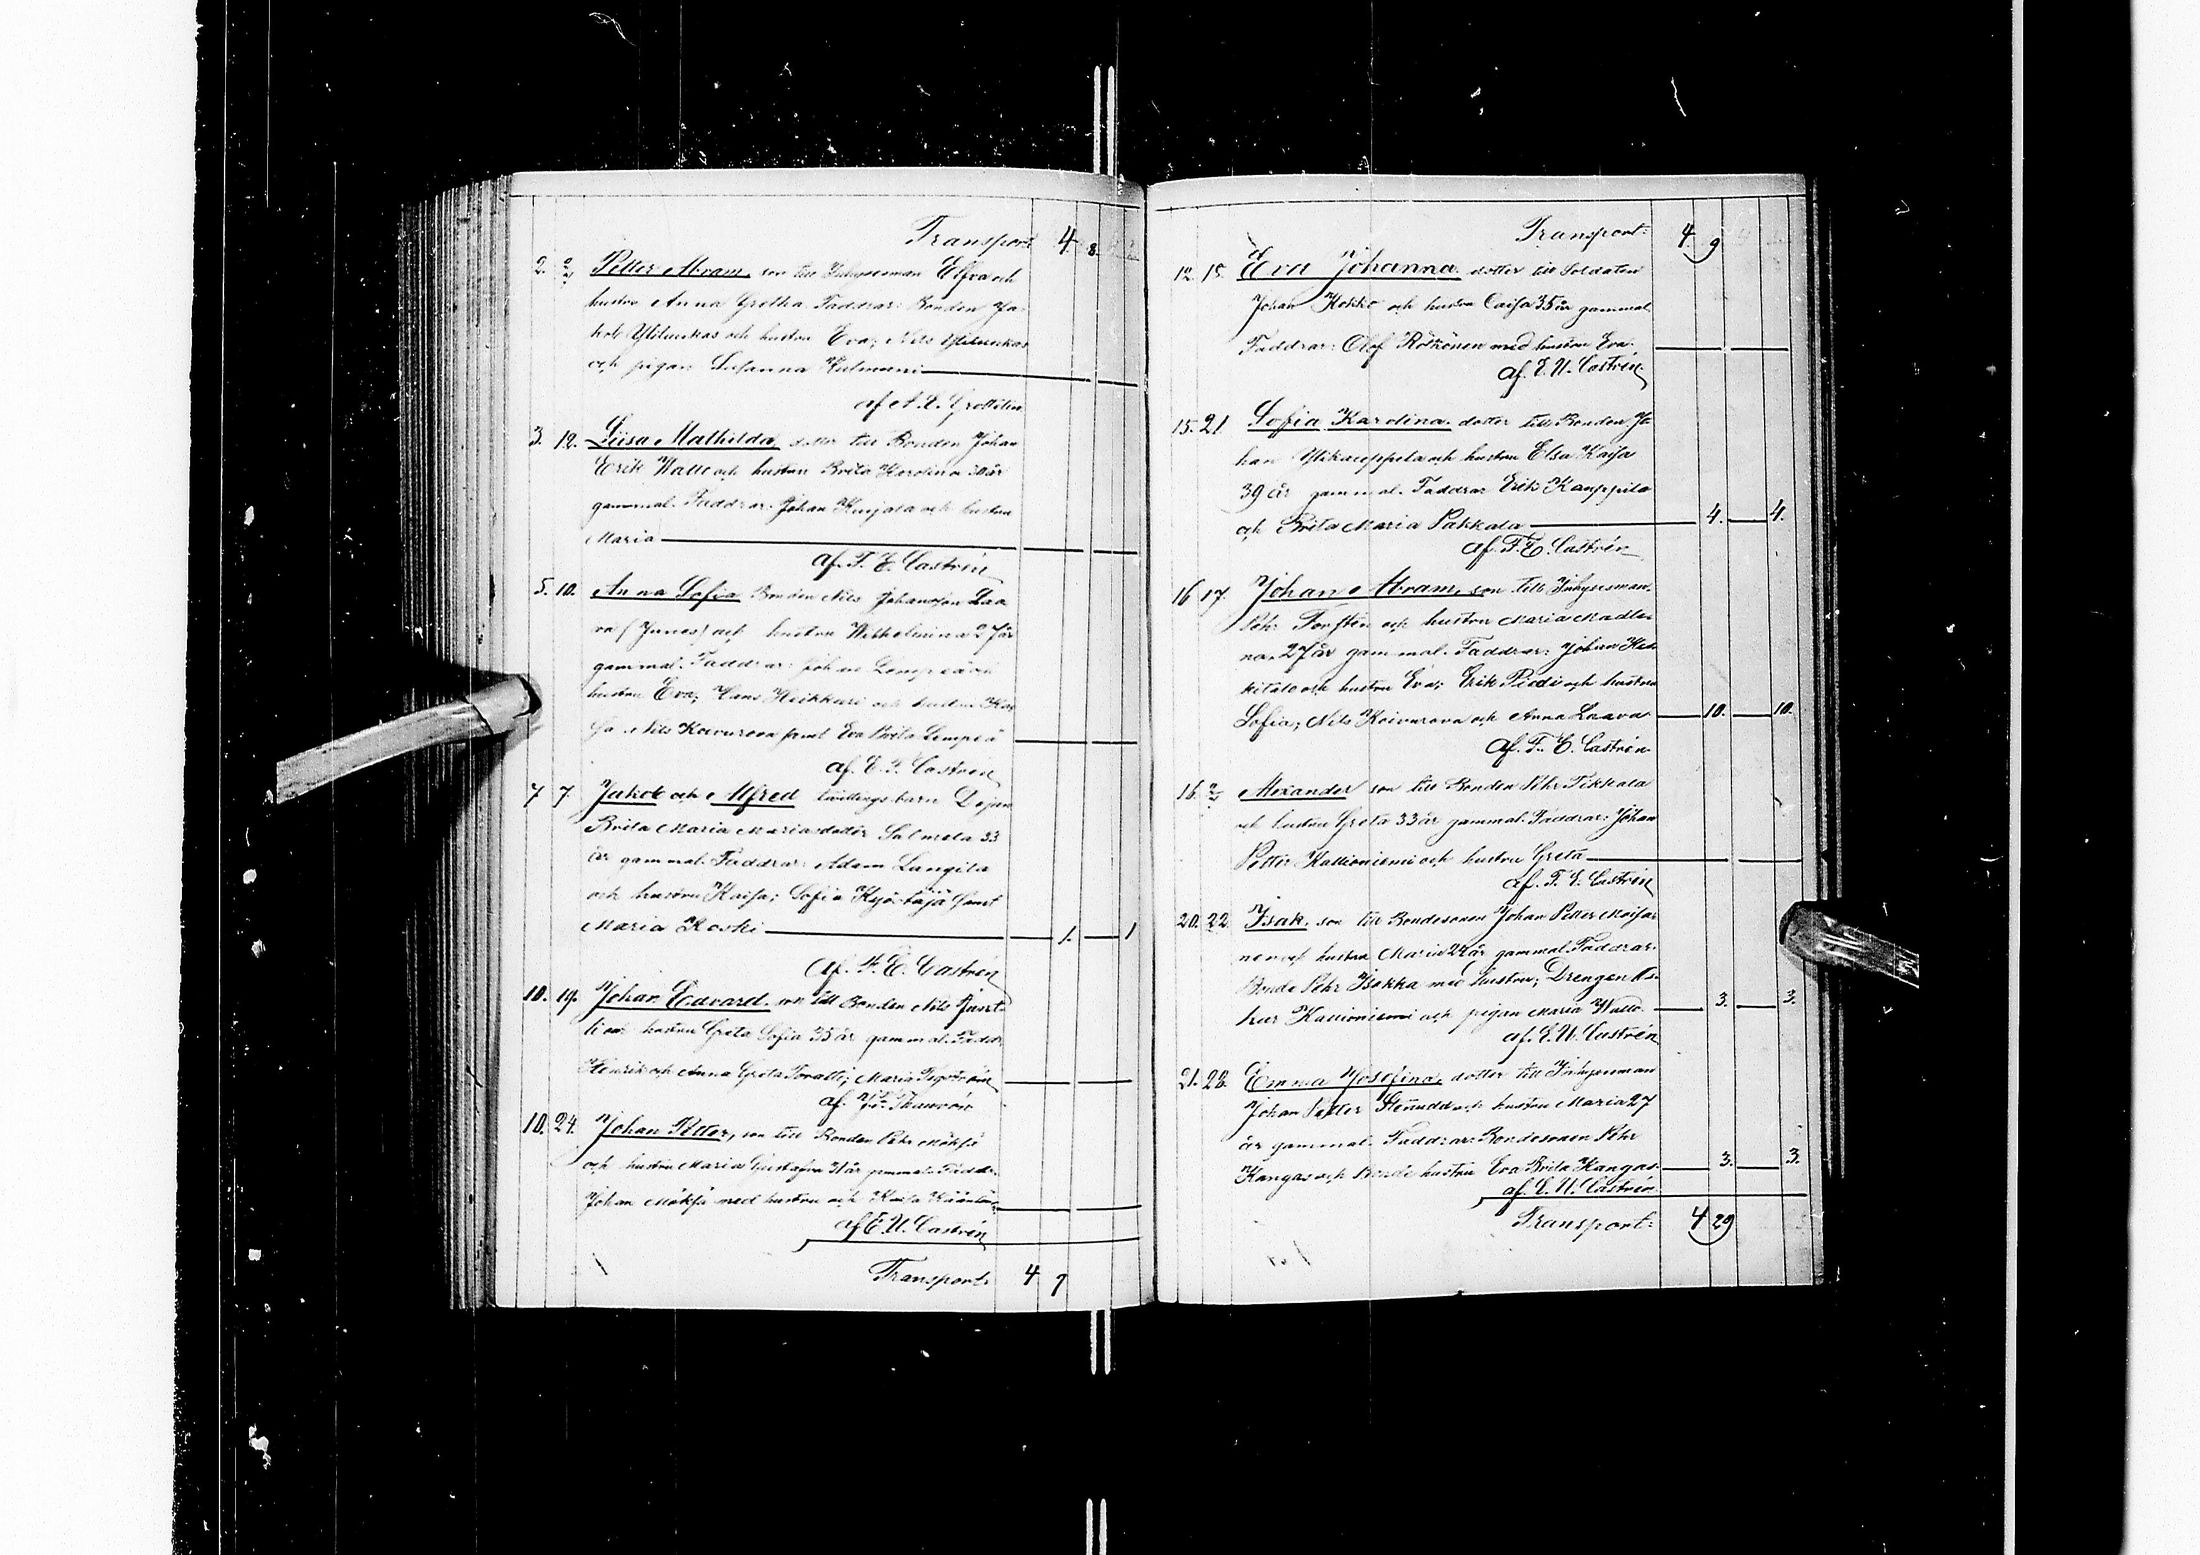 Transport: 4. 8.
2. 2/4 Petter Abram, son till Inhysesman Elfva och
hustru Anna Gretha Faddrar: Bonden Ja-
kob Ylituikas och hustru Eva; Nils
och pigan Susanna
af A. L. Grottelin
3. 12. Liisa Mathilda, dotter till Bonden Johan
Erik Wallo och hustru Brita Karolina 30 år
gammal. Faddrar: Johan Kurjala och hustru
Maria
af. F. E. Castrén
5. 10. Anna Sofia Bonden Nils Johansson Laa
va (Junes) och hustru Wilhelmina 27 år
gammal. Faddrar: Johan Lempeä och
hustru Eva; Hans Heikkari och hustru Kai
sa Nils Koivurova samt Eva Brita Lempeä
af. E. U. Castrén
7 7. Jakob och Alfred tvillings barn Dejan
Brita Maria Mariasdotter Salmela 33
år gammal. Faddrar: Adam Langila
och hustru Kaisa; Sofia Kyöstäjä samt
Maria Koski 1. 1
af. F. E. Castrén
10. 19. Johan Edvard, son till Bonden Nils
hustru Greta Sofia 35 år gammal. Faddr.
Henrik och Anna Greta Maria
af.
10. 24. Johan Petter, son till Bonden Pehr Mäkjä
och hustru Maria Gustafva 31 år gammal. Fadd.
Johan Mäkjä med hustru och Kaisa
af E. U. Castrén
Transport: 4 9
Transport: 4 9
12. 15. Eva Johanna. dotter till Soldaten
Johan Kokko och hustru Caisa 35 år gammal
Faddrar: Olof Rötkönen med hustru Eva.
af. E. U. Castrén
15. 21. Sofia Karolina. dotter till Bonden Jo
han Ylikauppila och hustru Elsa Kaisa
39 år gammal. Faddrar Erik Kauppila
och Brita Maria Pakkala 4. 4.
af. F. E. Castrén
16 17. Johan Abram, son till Inhysesman
Pehr Torsten och hustru Maria Madle-
na. 27 år gammal. Faddrar: Johan Hei
kitalo och hustru Eva; Erik Piedi och hustru
Sofia; Nils Koivurova och Anna Laava 10. 10.
af. F. E. Castrén
16. 2/5 Alexander son till Bonden Pehr Tikkala
och hustru Greta 33 år gammal. Faddrar: Johan
Petter Kallioniemi och hustru Greta
af. F. E. Castrén
20. 22 Isak, son till Bondesonen Johan Petter Maisa
nen och hustru Maria 24 år gammal. Faddrar.
Bonde Pehr Isokka med hustru; Drengen Os-
kar Kallioniemi och pigan Maria Wallo. 3. 3.
af. E. U. Castrén
21. 28. Emma Josefina, dotter till Inhysesman
Johan Petter Stenudd och hustru Maria 27
år gammal. Faddrar: Bondesonen Pehr
Kangas och Bonde hustru Eva Brita Kangas. 3. 3.
af. E. U. Castrén
Transport: 4 29